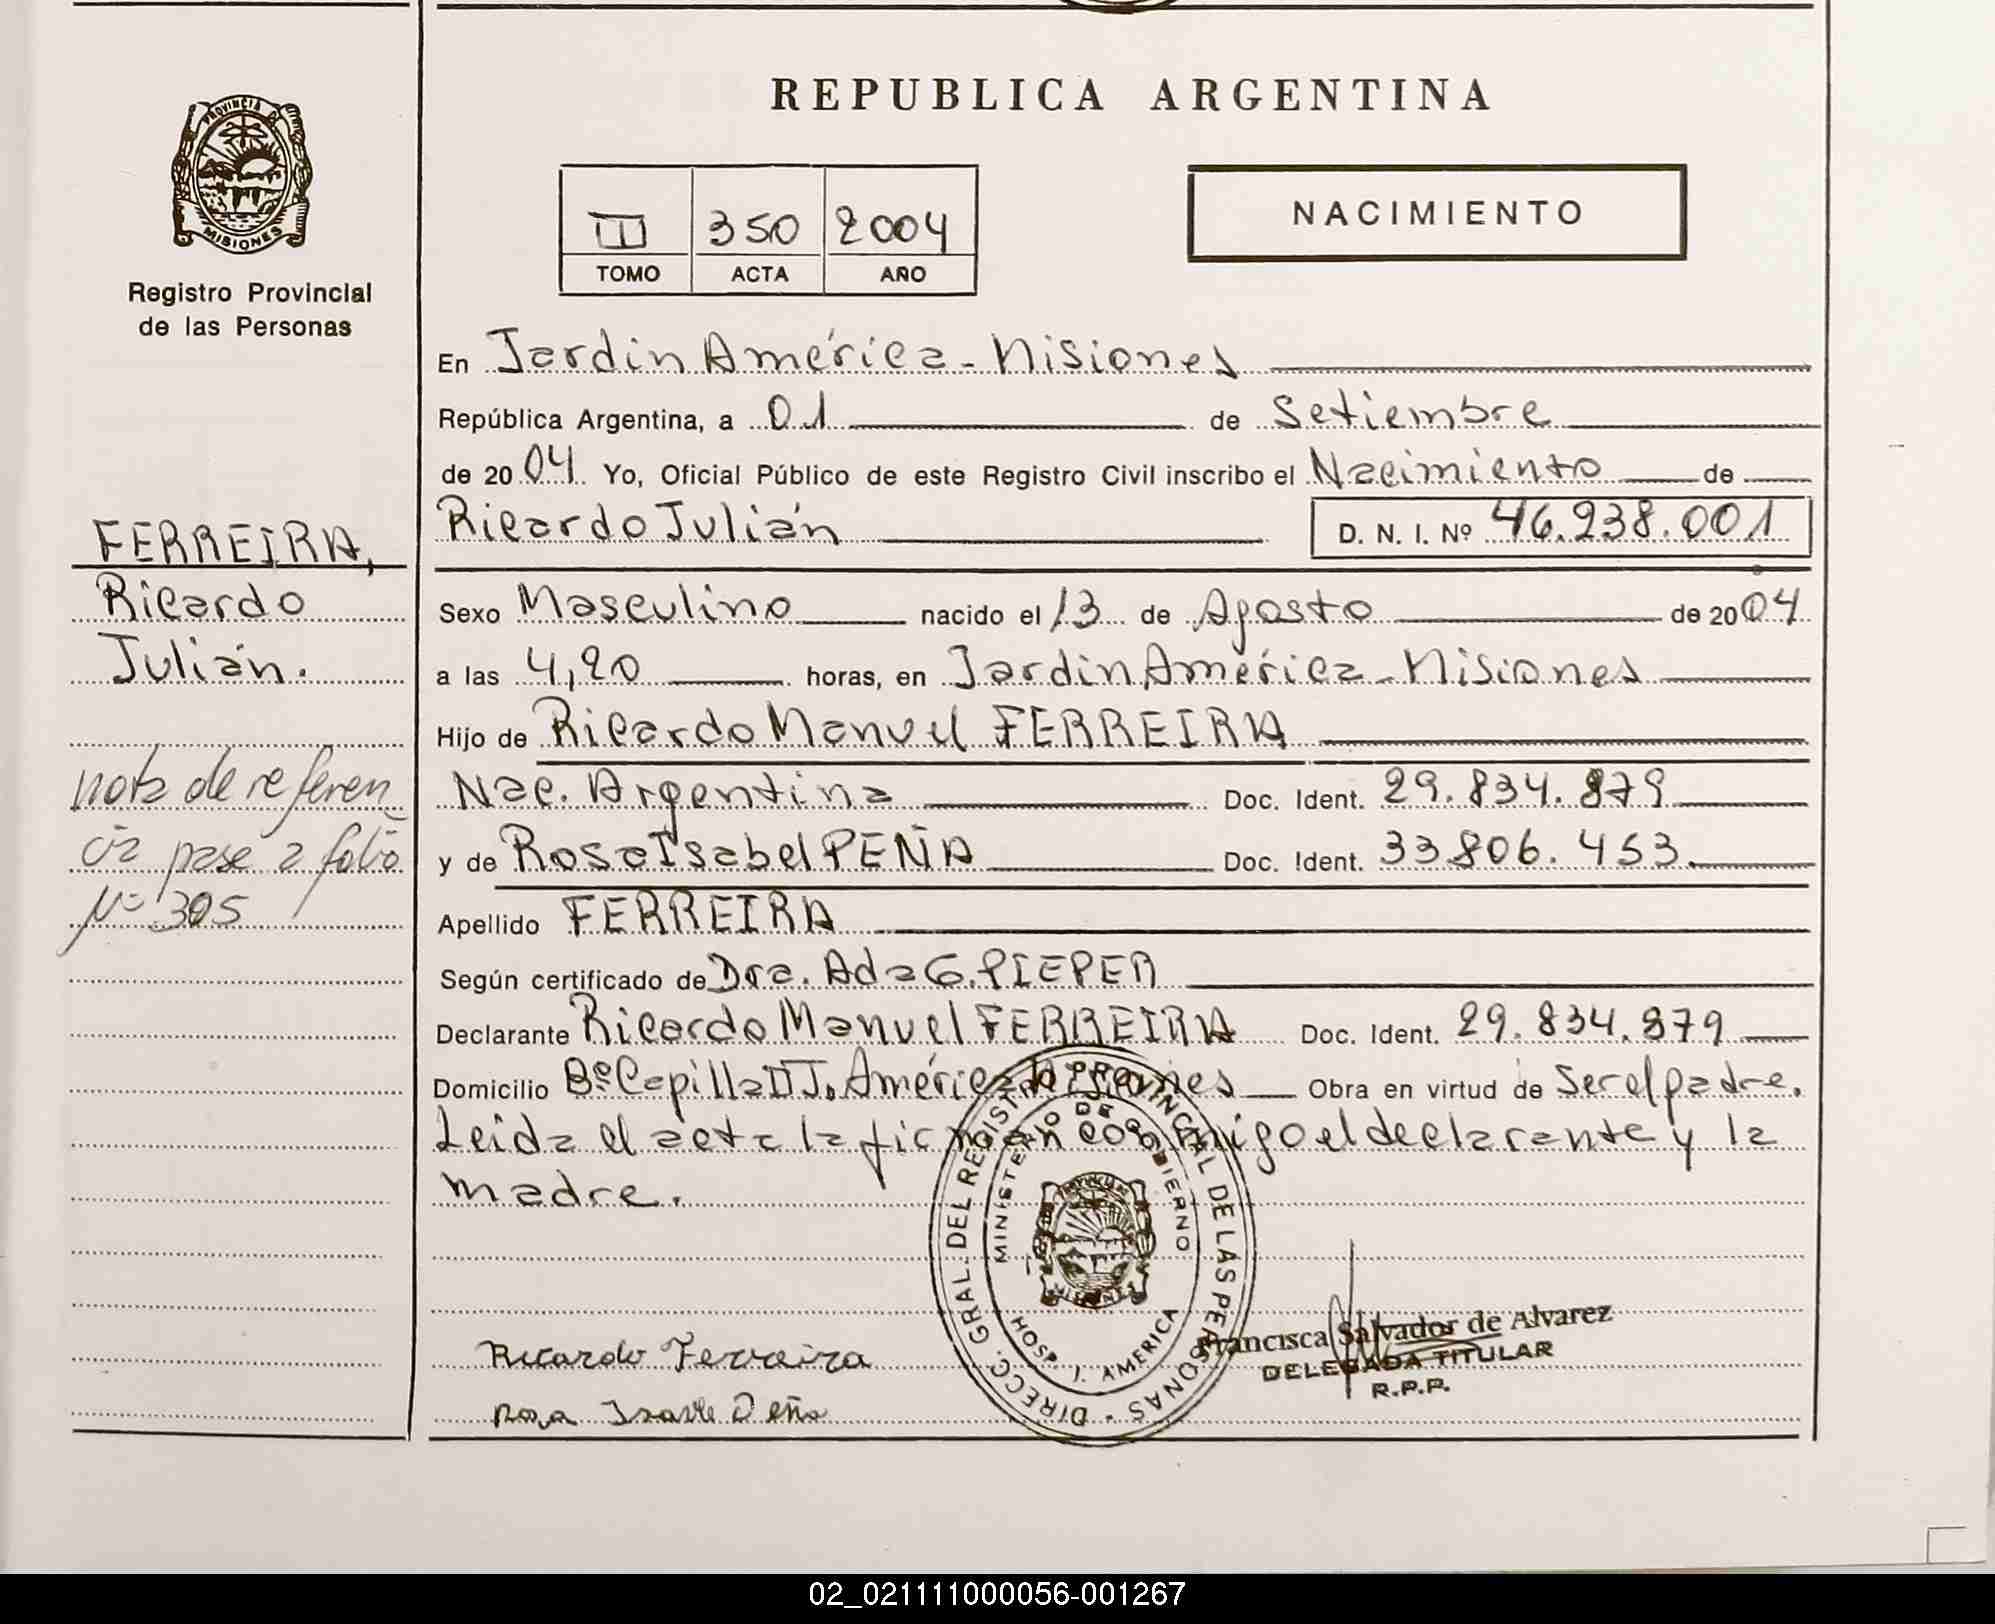 REPUBLICA ARGENTINA
PROVINCIA DE
MISIONES
Registro Provincial
de las Personas
II 350 2004
TOMO ACTA AÑO
NACIMIENTO
En Jardin América - Misiones
República Argentina, a 01 de Setiembre
de 2004 Yo, Oficial Público de este Registro Civil inscribo el Nacimiento de
Ricardo Julián D. N. I. Nº 46.238.001
Sexo Masculino nacido el 13 de Agosto de 2004
a las 4,20 horas, en Jardin América - Misiones
Hijo de Ricardo Manuel FERREIRA
Nac. Argentina Doc. Ident. 29.834.879
y de Rosa Isabel PEÑA Doc. Ident. 33.806.453.
Apellido FERREIRA
Según certificado de Dra. Ada G. PIEPER
Declarante Ricardo Manuel FERREIRA Doc. Ident. 29.834.879
Domicilio Bº Capilla II J. América Misiones Obra en virtud de Ser el padre.
Leida el acta la firman conmigo el declarante y la
madre.
FERREIRA,
Ricardo
Julián.
nota de referen
cia pase a folio
Nº 305
DIRECC. GRAL. DEL REGISTRO PROVINCIAL DE LAS PERSONAS -
MINISTERIO DE GOBIERNO
HOSP. J. AMERICA
Ricardo Ferreira
Rosa Peña
Francisca Salvador de Alvarez
DELEGADA TITULAR
R.P.P.
02_021111000056-001267